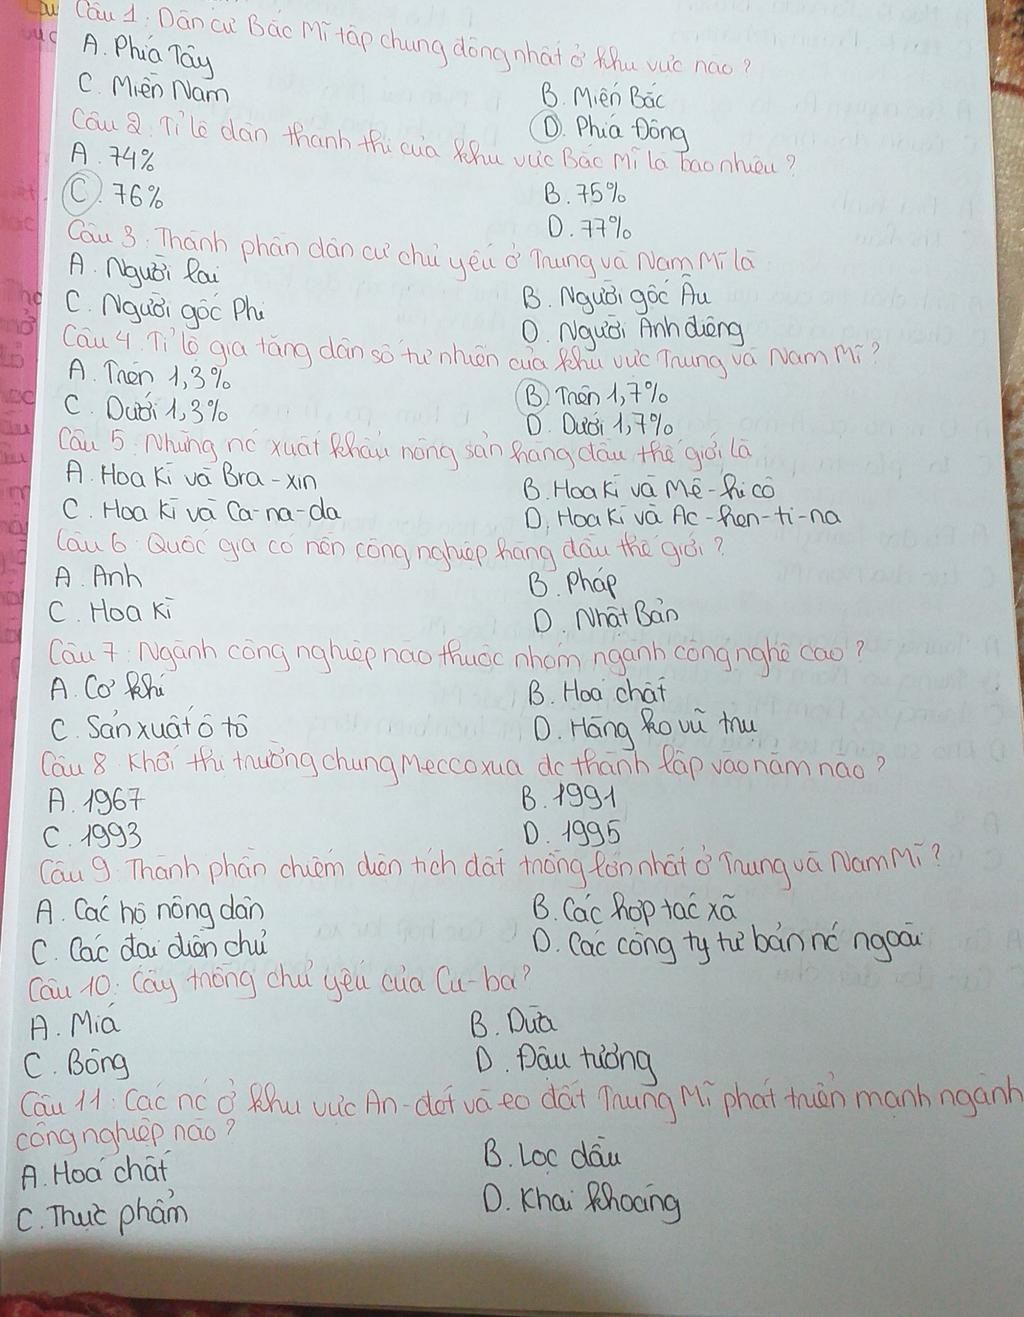 Câu 1: Dân cư Bắc Mĩ tập chung đông nhất ở khu vực nào?
A. Phía Tây
B. Miền Bắc
C. Miền Nam
D. Phía Đông
Câu 2: Tỉ lệ dân thành thị của khu vực Bắc Mĩ là bao nhiêu?
A. 74%
B. 75%
C. 76%
D. 77%
Câu 3: Thành phần dân cư chủ yếu ở Trung và Nam Mĩ là
A. Người lai
B. Người gốc Âu
C. Người gốc Phi
D. Người Anh điêng
Câu 4: Tỉ lệ gia tăng dân số tự nhiên của khu vực Trung và Nam Mĩ?
A. Trên 1,3%
B. Trên 1,7%
C. Dưới 1,3%
D. Dưới 1,7%
Câu 5: Những nc xuất khẩu nông sản hàng đầu thế giới là
A. Hoa Kì và Bra-xin
B. Hoa Kì và Mê-hi cô
C. Hoa Kì và Ca-na-da
D. Hoa Kì và Ac-hen-ti-na
Câu 6: Quốc gia có nền công nghiệp hàng đầu thế giới?
A. Anh
B. Pháp
C. Hoa Kì
D. Nhật Bản
Câu 7: Ngành công nghiệp nào thuộc nhóm ngành công nghệ cao?
A. Cơ khí
B. Hoa chất
C. Sản xuất ô tô
D. Hàng ko vũ trụ
Câu 8: Khối thị trường chung Meccoxua dc thành lập vào năm nào?
A. 1967
B. 1991
C. 1993
D. 1995
Câu 9: Thành phần chiếm diện tích đất trồng lớn nhất ở Trung và Nam Mĩ?
A. Các hộ nông dân
B. Các hợp tác xã
C. Các đại điền chủ
D. Các công ty tư bản nc ngoài
Câu 10: Cây trồng chủ yếu của Cu-ba?
A. Mía
B. Dừa
C. Bông
D. Đậu tương
Câu 11: Các nc ở khu vực An-det và eo đất Trung Mĩ phát triển mạnh ngành
công nghiệp nào?
A. Hoá chất
B. Lọc dầu
C. Thực phẩm
D. Khai khoáng